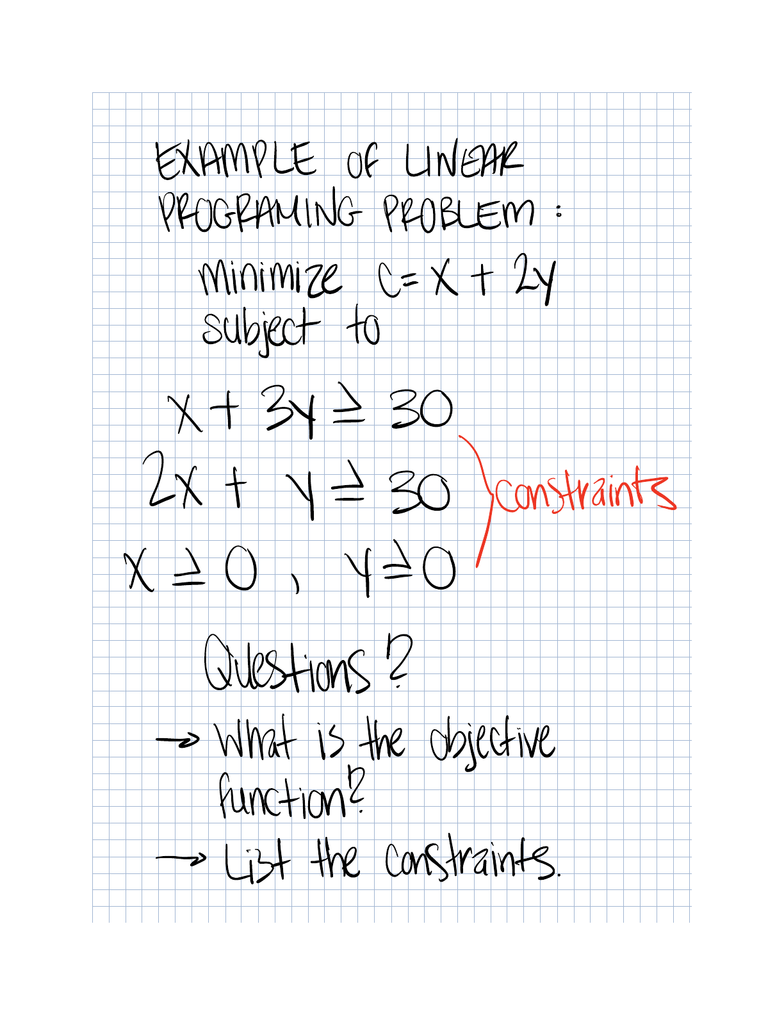 EXAMPLE OF LINEAR
PROGRAMING PROBLEM :
minimize C = x + 2y
subject to
x + 3y ≥ 30
2x + y ≥ 30
constraints
x ≥ 0 , y ≥ 0
Questions ?
→ What is the objective
function?
→ List the constraints.